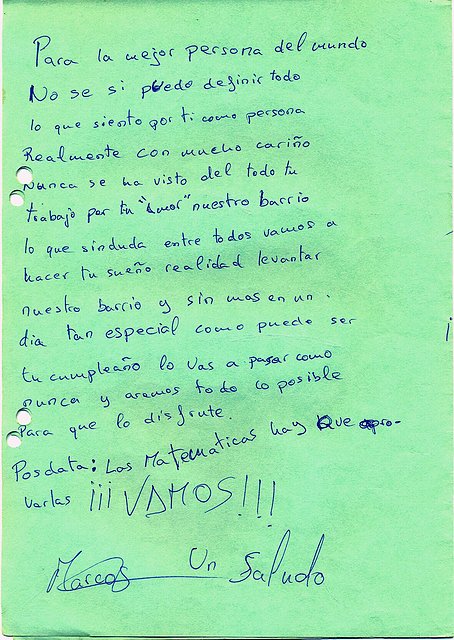 Para la mejor persona del mundo
No se si puedo definir todo
lo que siento por ti como persona
Realmente con mucho cariño
Nunca se ha visto del todo tu
trabajo por tu "Amor" nuestro barrio
lo que sinduda entre todos vamos a
hacer tu sueño realidad levantar
nuestro barrio y sin mas en un
dia tan especial como puede ser
tu cumpleaño lo vas a pasar como
nunca y aremos todo lo posible
Para que lo disfrute.
Posdata: Las Matematicas hay que apro-
varlas ¡¡¡VAMOS!!!
Marcos Un Saludo